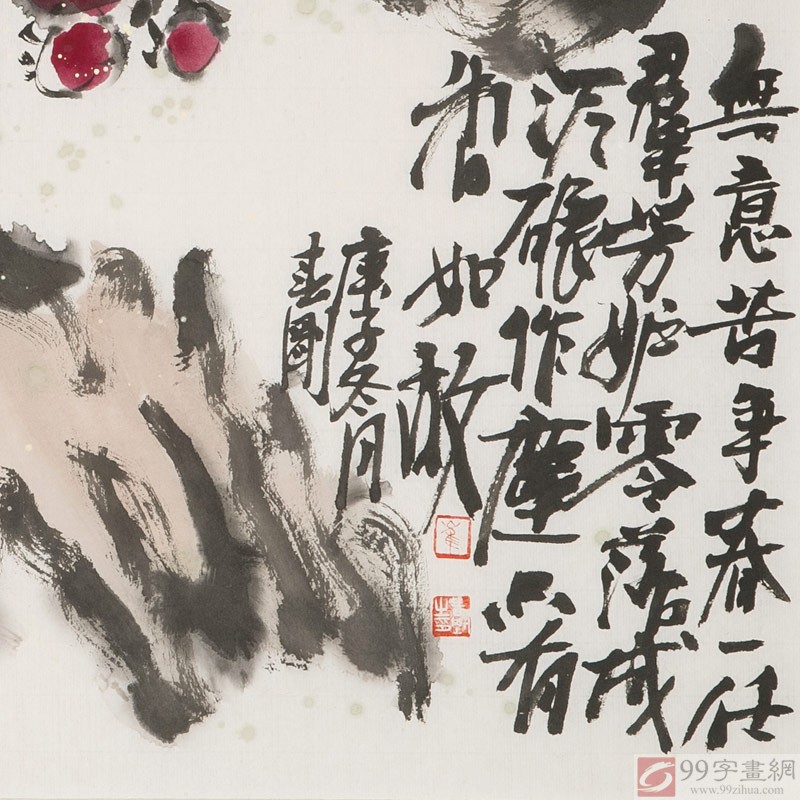 無意苦争春一任
羣芳妒零落成
泥碾作塵只有
香如故
庚子冬月
99字畫網
www.99zihua.com